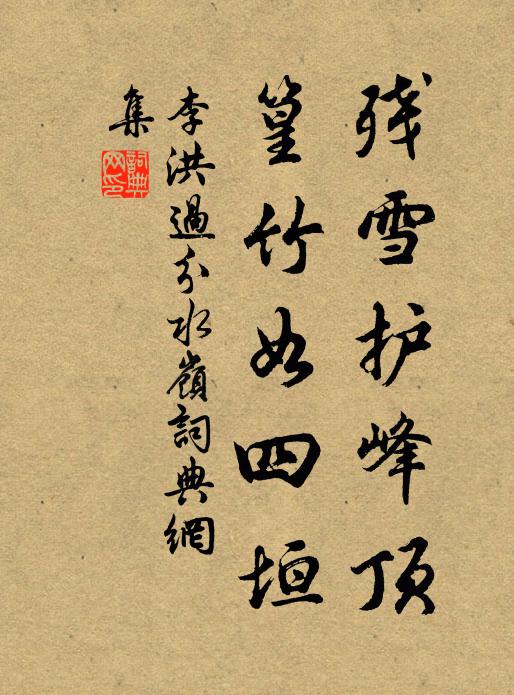 残雪护峰顶
篁竹如四垣
李洪過分水嶺詞典網
集
詞典网印